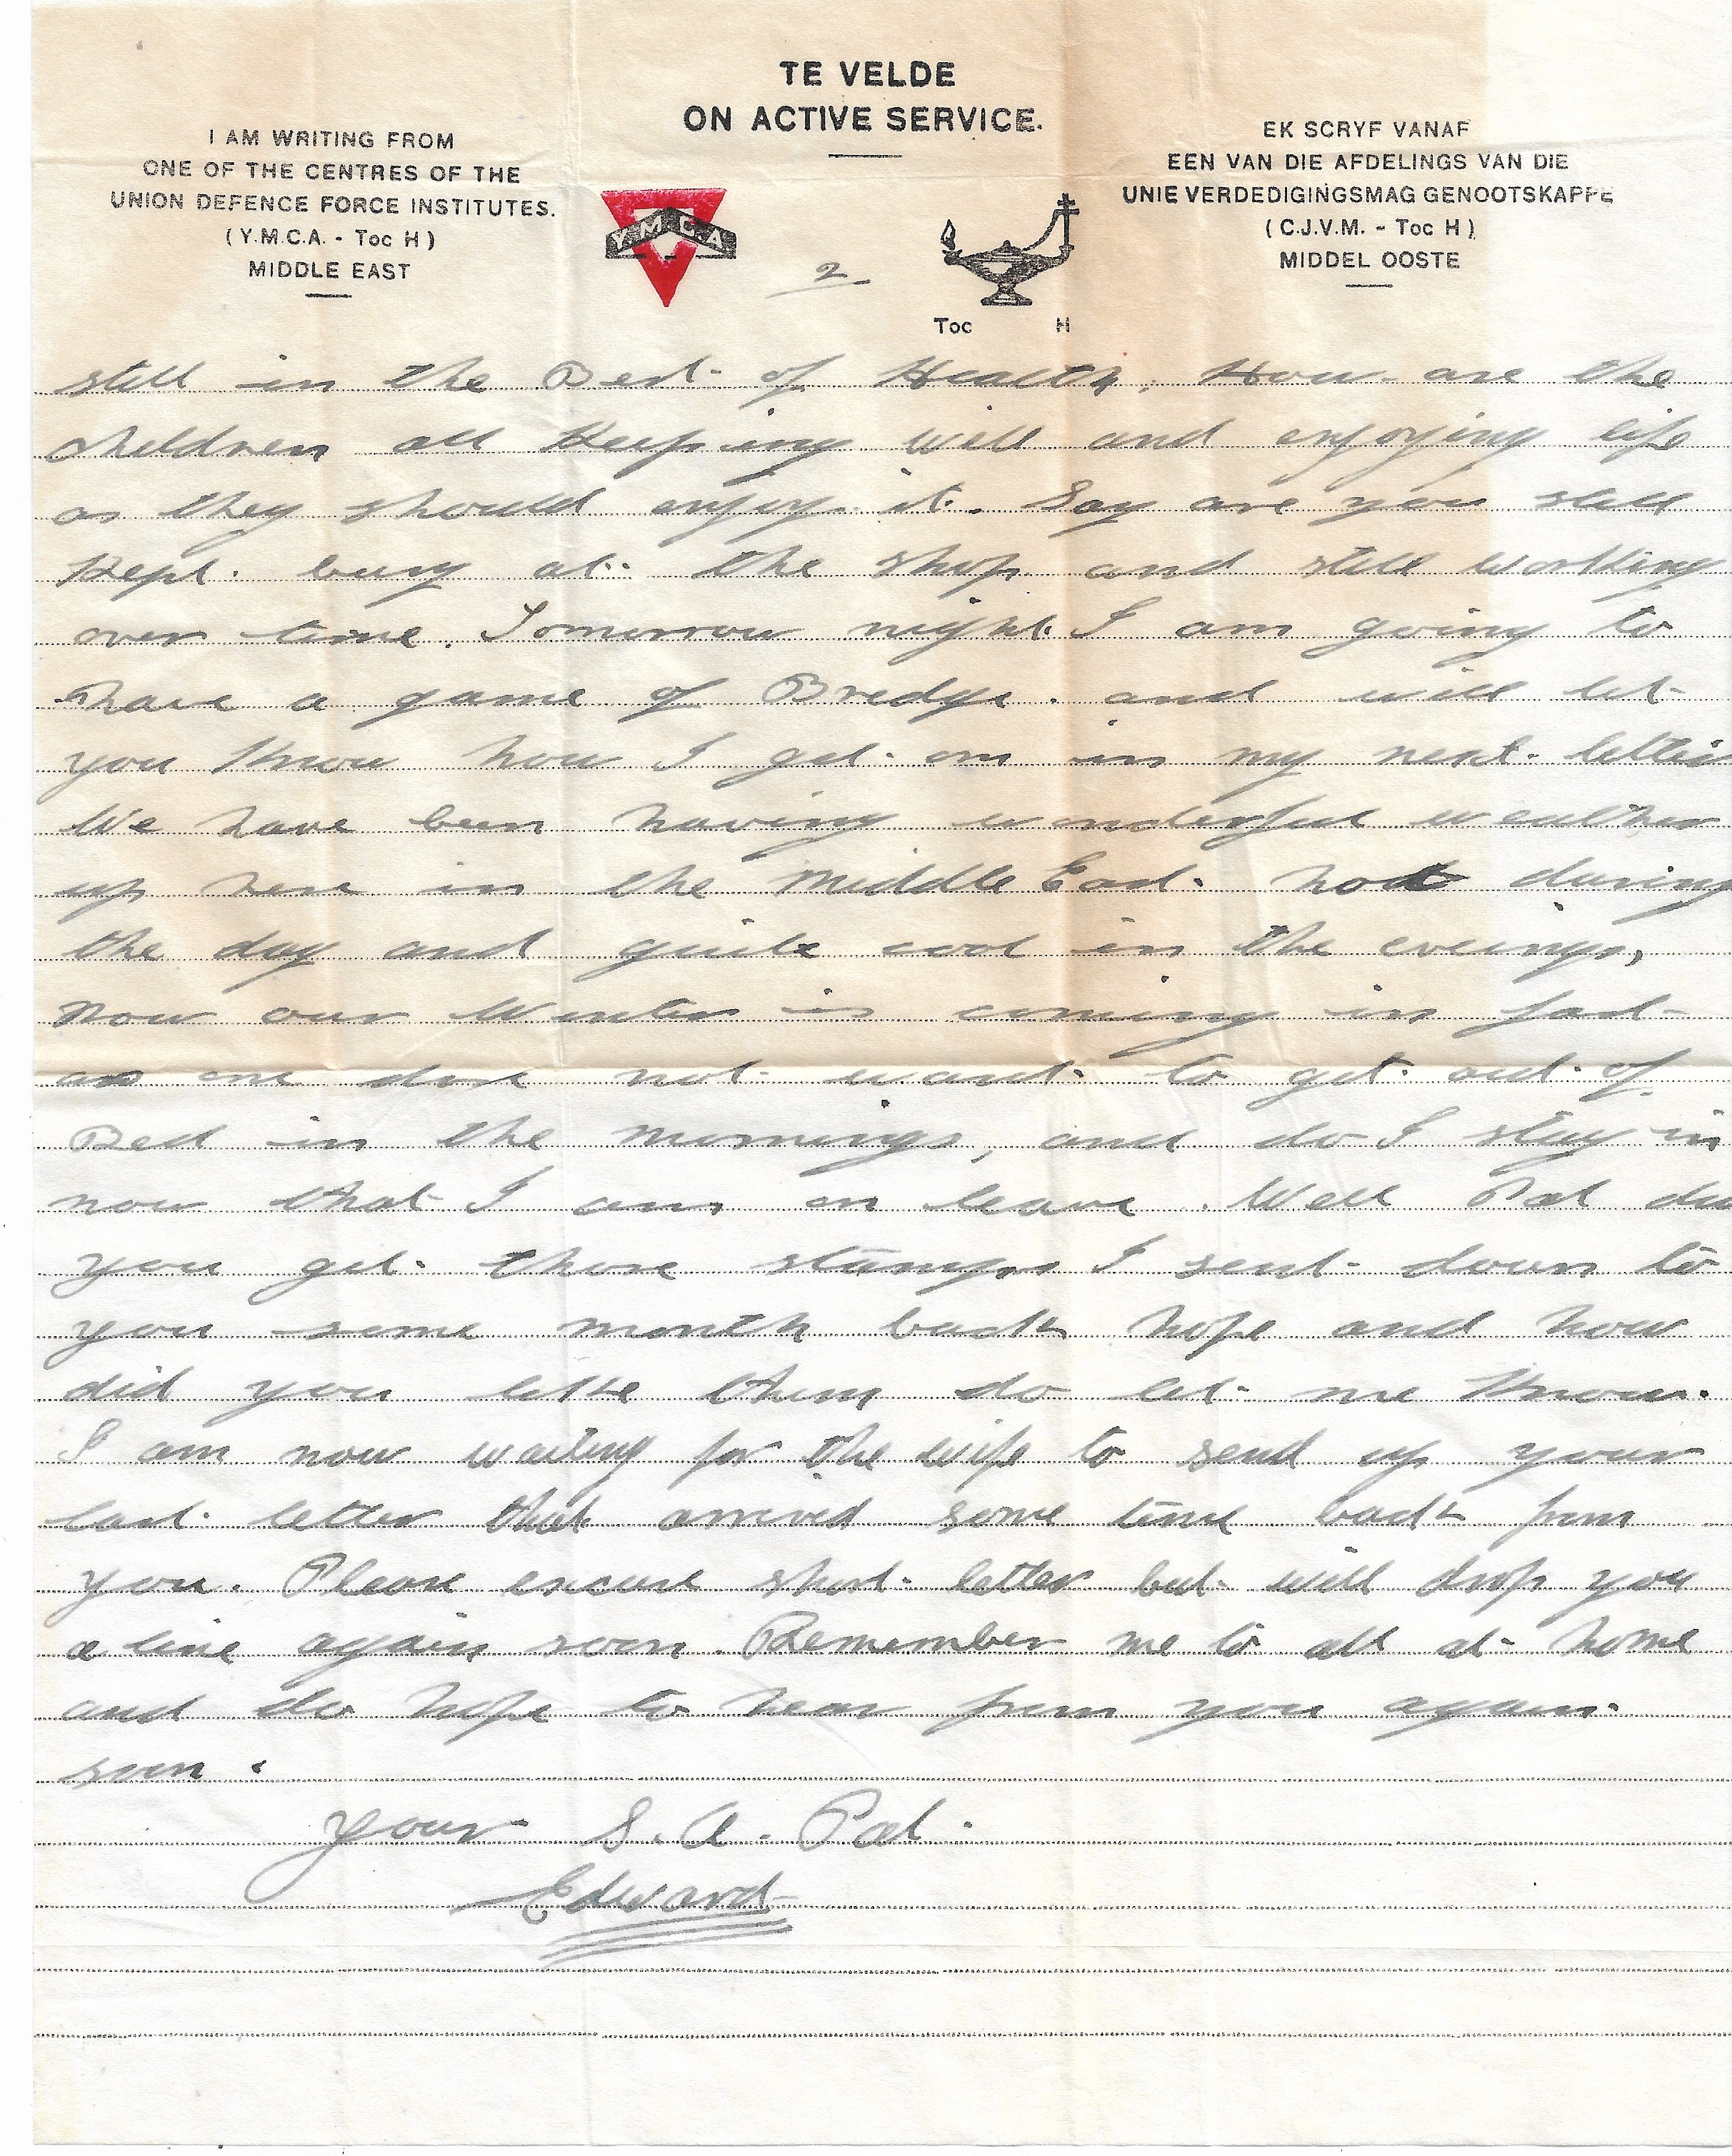 TE VELDE
ON ACTIVE SERVICE.
I AM WRITING FROM
ONE OF THE CENTRES OF THE
UNION DEFENCE FORCE INSTITUTES.
(Y.M.C.A. - Toc H)
MIDDLE EAST
Y.M.C.A
2
Toc H
EK SCRYF VANAF
EEN VAN DIE AFDELINGS VAN DIE
UNIE VERDEDIGINGSMAG GENOOTSKAPPE
(C.J.V.M. - Toc H)
MIDDEL OOSTE
still in the Best of Health. How are the
children all keeping well and enjoying life
as they should enjoy it. Say are you still
kept busy at the shop and still working
over time. Tomorrow night I am going to
have a game of Bredge. and will let
you know how I get on in my next letter
We have been having wonderful weather
up here in the Middle East. hot during
the day and quite cool in the eveings,
now our Winter is coming in fast
as one dose not want to get out of
Bed in the mornings, and do I stay in
now that I am on leave. Well Pal did
you get those stamps I sent down to
you some month back hope and how
did you like them do let me know.
I am now waiting for the wife to send up your
last letter that arrived some time back from
you. Please excuse short letter but will drop you
a line again soon. Remember me to all at home
and do hope to hear from you again
soon.
your S.A. Pal.
Edward